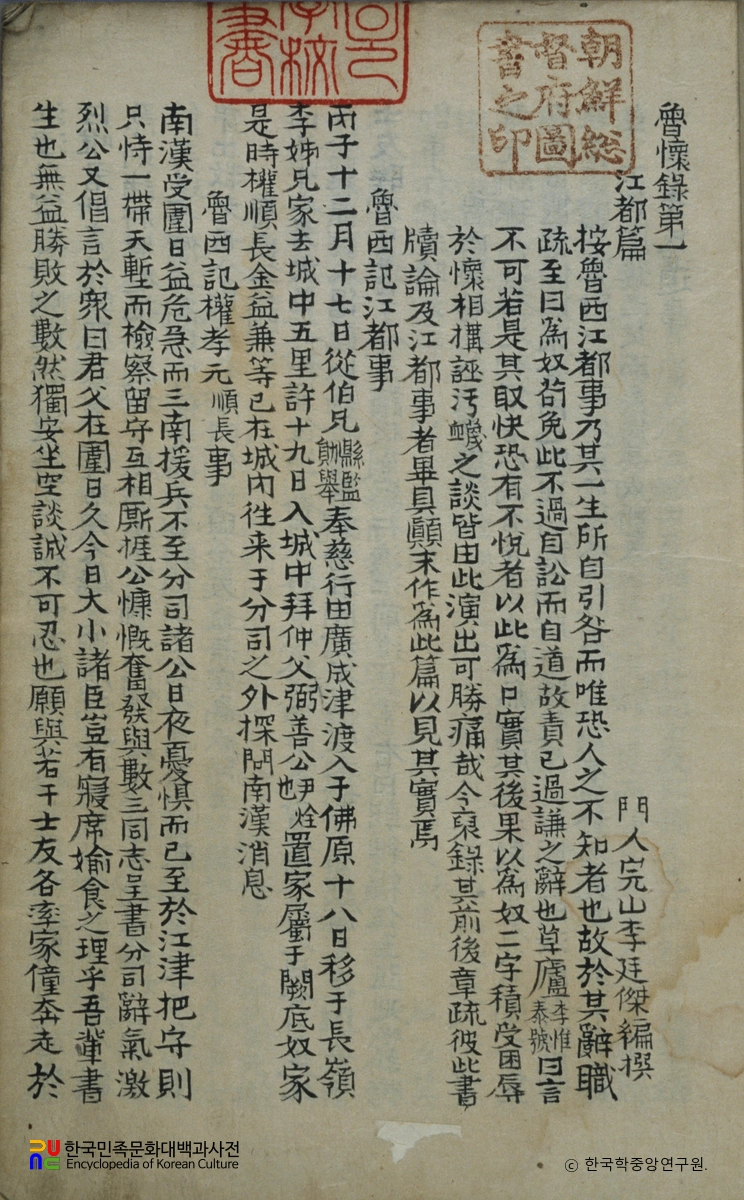 魯懷錄第一
江都篇
門人完山李廷傑編撰
按魯西江都事乃其一生所自引咎而唯恐人之不知者也故於其辭職
疏至曰爲奴苟免此不過自訟而自道故責已過謙之辭也草廬李惟泰號曰言
不可若是其取快恐有不悅者以此爲口實其後果以爲奴二字積受困辱
於懷相搆誣汚衊之談皆由此演出可勝痛哉今裒錄其前後章疏彼此書
牘論及江都事者畢具顚末作爲此篇以見其實焉
魯西記江都事
丙子十二月十七日從伯兄縣監勛擧奉慈行由廣成津渡入于佛原十八日移于長嶺
李姊兄家去城中五里許十九日入城中拜仲父弼善公尹烇也置家屬于闕底奴家
是時權順長金益兼等已在城內往来于分司之外探問南漢消息
魯西記權孝元順長事
南漢受圍日益危急而三南援兵不至分司諸公日夜憂惧而已至於江津把守則
只恃一帶天塹而檢察留守互相厮捱公慷慨奮發與數三同志呈書分司辭氣激
烈公又倡言於衆曰君父在圍日久今日大小諸臣豈有寢席媮食之理乎吾輩書
生也無益勝敗之數然獨安坐空談誠不可忍也願與若干士友各率家僮奔走於
朝鮮総督府圖書之印
學校
書
한국민족문화대백과사전
Encyclopedia of Korean Culture
© 한국학중앙연구원.